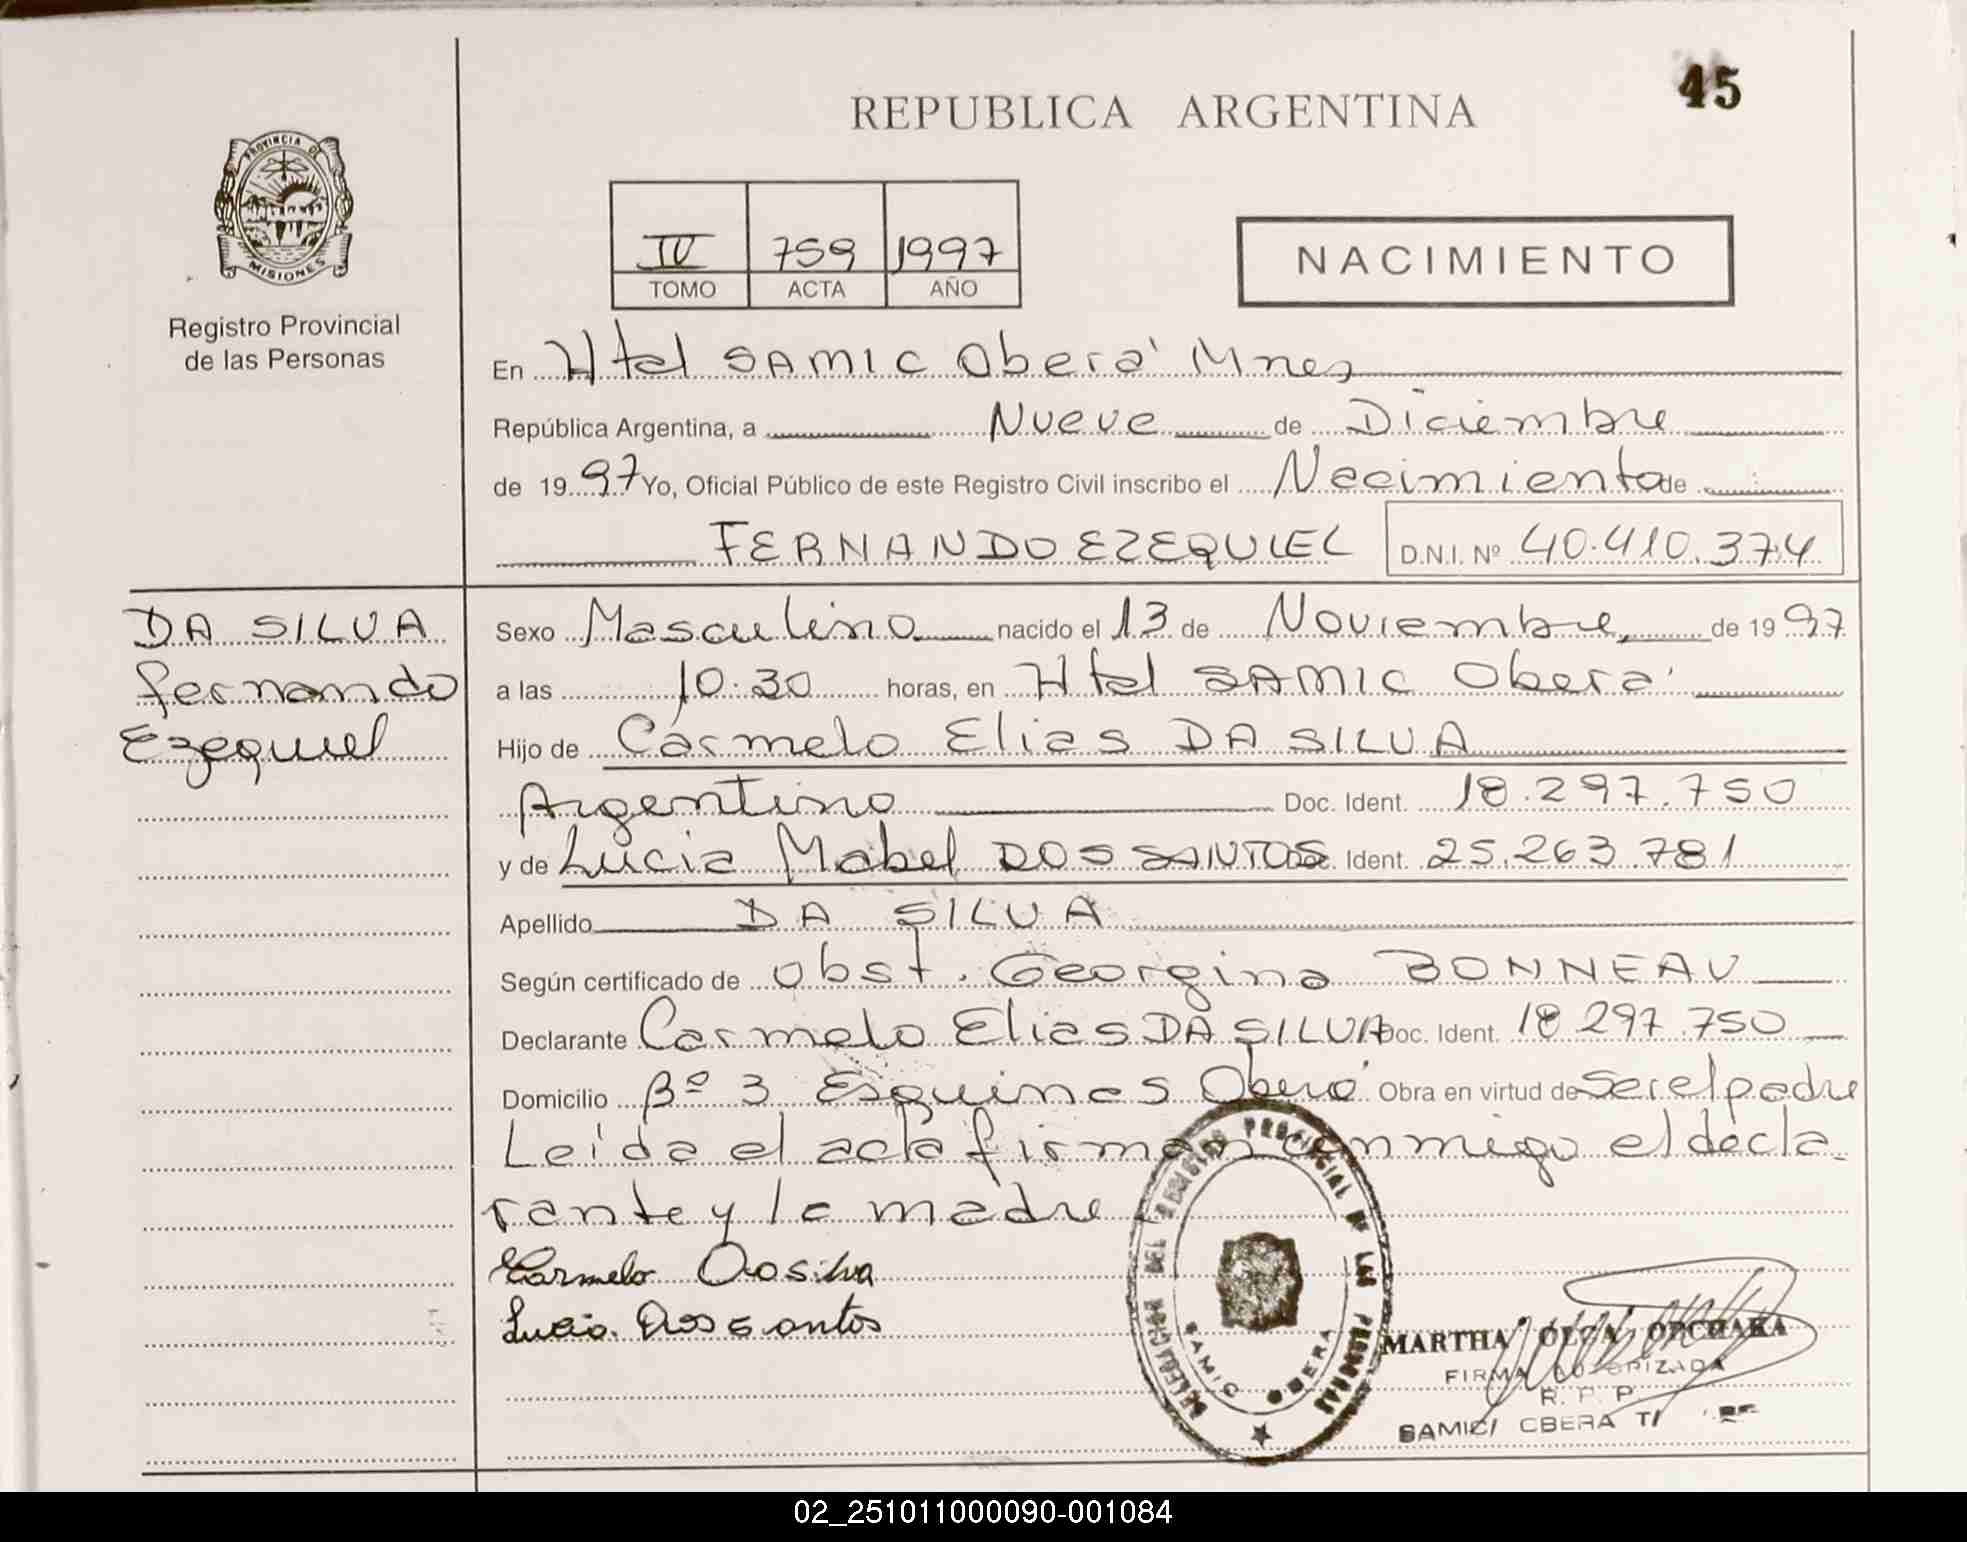 45
REPUBLICA ARGENTINA
PROVINCIA DE
MISIONES
Registro Provincial
de las Personas
IV 759 1997
TOMO ACTA AÑO
NACIMIENTO
En Htal SAMIC Oberá Mnes
República Argentina, a Nueve de Diciembre
de 1997 Yo, Oficial Público de este Registro Civil inscribo el Nacimiento de
FERNANDO EZEQUIEL D.N.I. Nº 40.410.374
DA SILVA
Fernando
Ezequiel
Sexo Masculino nacido el 13 de Noviembre de 1997
a las 10.30 horas, en Htal SAMIC Oberá
Hijo de Carmelo Elias DA SILVA
Argentino Doc. Ident. 18.297.750
y de Lucia Mabel DOS SANTOS Doc. Ident. 25.263.781
Apellido DA SILVA
Según certificado de obst. Georgina BONNEAU
Declarante Carmelo Elias DA SILVA Doc. Ident. 18 297.750
Domicilio Bº 3 Esquinas Oberá Obra en virtud de Ser el padre
Leída el acta firman conmigo el decla-
rante y la madre
Carmelo Da silva
Lucia Dos santos
DELEGACION DEL REGISTRO PROVINCIAL DE LAS PERSONAS
SAMIC OBERA
MARTHA OLGA OPCHAKA
FIRMA AUTORIZADA
R. P. P.
SAMIC/ OBERA
02_251011000090-001084